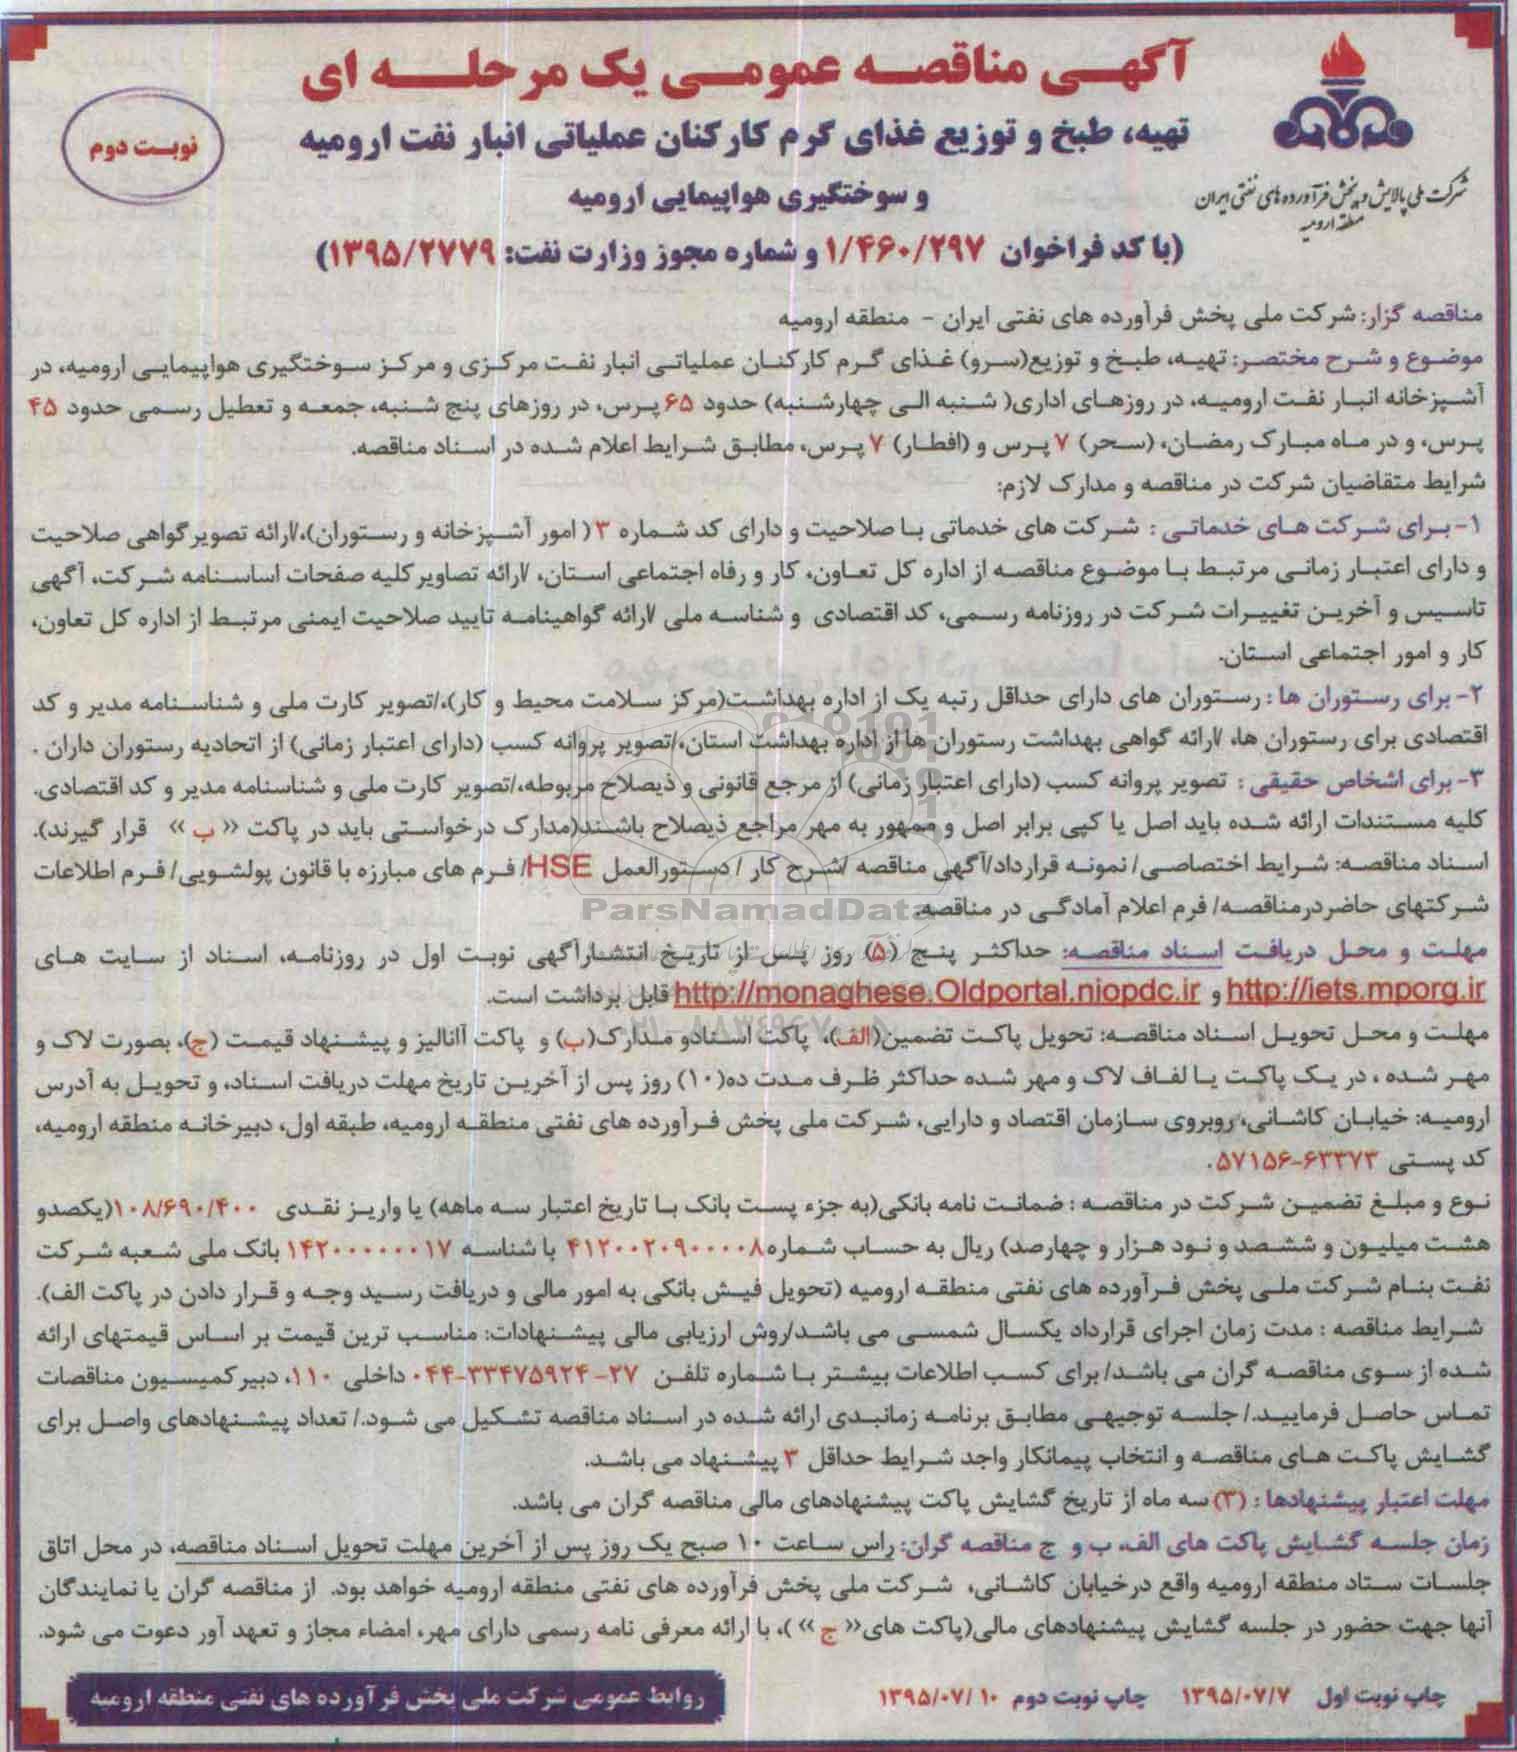 آگهی مناقصه عمومی یک مرحله ای
تهیه، طبخ و توزیع غذای گرم کارکنان عملیاتی انبار نفت ارومیه
و سوختگیری هواپیمایی ارومیه
(با کد فراخوان ۱/۴۶۰/۲۹۷ و شماره مجوز وزارت نفت: ۱۳۹۵/۲۷۷۹)
نوبت دوم
شرکت ملی پالایش و پخش فرآورده های نفتی ایران
منطقه ارومیه
مناقصه گزار: شرکت ملی پخش فرآورده های نفتی ایران - منطقه ارومیه
موضوع و شرح مختصر: تهیه، طبخ و توزیع(سرو) غذای گرم کارکنان عملیاتی انبار نفت مرکزی و مرکز سوختگیری هواپیمایی ارومیه، در
آشپزخانه انبار نفت ارومیه، در روزهای اداری( شنبه الی چهارشنبه) حدود ۶۵ پرس، در روزهای پنج شنبه، جمعه و تعطیل رسمی حدود ۴۵
پرس، و در ماه مبارک رمضان، (سحر) ۷ پرس و (افطار) ۷ پرس، مطابق شرایط اعلام شده در اسناد مناقصه.
شرایط متقاضیان شرکت در مناقصه و مدارک لازم:
۱- برای شرکت های خدماتی : شرکت های خدماتی با صلاحیت و دارای کد شماره ۳ ( امور آشپزخانه و رستوران)،/ارائه تصویر گواهی صلاحیت
و دارای اعتبار زمانی مرتبط با موضوع مناقصه از اداره کل تعاون، کار و رفاه اجتماعی استان، /ارائه تصاویر کلیه صفحات اساسنامه شرکت، آگهی
تاسیس و آخرین تغییرات شرکت در روزنامه رسمی، کد اقتصادی و شناسه ملی /ارائه گواهینامه تایید صلاحیت ایمنی مرتبط از اداره کل تعاون،
کار و امور اجتماعی استان.
۲- برای رستوران ها : رستوران های دارای حداقل رتبه یک از اداره بهداشت(مرکز سلامت محیط و کار)،/تصویر کارت ملی و شناسنامه مدیر و کد
اقتصادی برای رستوران ها، /ارائه گواهی بهداشت رستوران ها از اداره بهداشت استان،/تصویر پروانه کسب (دارای اعتبار زمانی) از اتحادیه رستوران داران .
۳- برای اشخاص حقیقی : تصویر پروانه کسب (دارای اعتبار زمانی) از مرجع قانونی و ذیصلاح مربوطه،/تصویر کارت ملی و شناسنامه مدیر و کد اقتصادی.
کلیه مستندات ارائه شده باید اصل یا کپی برابر اصل و ممهور به مهر مراجع ذیصلاح باشند(مدارک درخواستی باید در پاکت « ب » قرار گیرند).
اسناد مناقصه: شرایط اختصاصی/ نمونه قرارداد/آگهی مناقصه /شرح کار / دستورالعمل HSE/ فرم های مبارزه با قانون پولشویی/ فرم اطلاعات
شرکتهای حاضر درمناقصه/ فرم اعلام آمادگی در مناقصه.
مهلت و محل دریافت اسناد مناقصه: حداکثر پنج (۵) روز پس از تاریخ انتشارآگهی نوبت اول در روزنامه، اسناد از سایت های
http://iets.mporg.ir و http://monaghese.Oldportal.niopdc.ir قابل برداشت است.
مهلت و محل تحویل اسناد مناقصه: تحویل پاکت تضمین(الف)، پاکت اسنادو مدارک(ب) و پاکت آنالیز و پیشنهاد قیمت (ج)، بصورت لاک و
مهر شده ، در یک پاکت یا لفاف لاک و مهر شده حداکثر ظرف مدت ده(۱۰) روز پس از آخرین تاریخ مهلت دریافت اسناد، و تحویل به آدرس
ارومیه: خیابان کاشانی، روبروی سازمان اقتصاد و دارایی، شرکت ملی پخش فرآورده های نفتی منطقه ارومیه، طبقه اول، دبیرخانه منطقه ارومیه،
کد پستی ۶۳۳۷۳-۵۷۱۵۶.
نوع و مبلغ تضمین شرکت در مناقصه : ضمانت نامه بانکی(به جزء پست بانک با تاریخ اعتبار سه ماهه) یا واریز نقدی ۱۰۸/۶۹۰/۴۰۰(یکصدو
هشت میلیون و ششصد و نود هزار و چهارصد) ریال به حساب شماره ۴۱۲۰۰۲۰۹۰۰۰۰۸ با شناسه ۱۴۲۰۰۰۰۰۰۰۱۷ بانک ملی شعبه شرکت
نفت بنام شرکت ملی پخش فرآورده های نفتی منطقه ارومیه (تحویل فیش بانکی به امور مالی و دریافت رسید وجه و قرار دادن در پاکت الف).
شرایط مناقصه : مدت زمان اجرای قرارداد یکسال شمسی می باشد/روش ارزیابی مالی پیشنهادات: مناسب ترین قیمت بر اساس قیمتهای ارائه
شده از سوی مناقصه گران می باشد/ برای کسب اطلاعات بیشتر با شماره تلفن ۲۷-۳۳۴۷۵۹۲۴-۰۴۴ داخلی ۱۱۰، دبیر کمیسیون مناقصات
تماس حاصل فرمایید./ جلسه توجیهی مطابق برنامه زمانبدی ارائه شده در اسناد مناقصه تشکیل می شود./ تعداد پیشنهادهای واصل برای
گشایش پاکت های مناقصه و انتخاب پیمانکار واجد شرایط حداقل ۳ پیشنهاد می باشد.
مهلت اعتبار پیشنهادها : (۳) سه ماه از تاریخ گشایش پاکت پیشنهادهای مالی مناقصه گران می باشد.
زمان جلسه گشایش پاکت های الف، ب و ج مناقصه گران: راس ساعت ۱۰ صبح یک روز پس از آخرین مهلت تحویل اسناد مناقصه، در محل اتاق
جلسات ستاد منطقه ارومیه واقع درخیابان کاشانی، شرکت ملی پخش فرآورده های نفتی منطقه ارومیه خواهد بود. از مناقصه گران یا نمایندگان
آنها جهت حضور در جلسه گشایش پیشنهادهای مالی(پاکت های« ج » )، با ارائه معرفی نامه رسمی دارای مهر، امضاء مجاز و تعهد آور دعوت می شود.
چاپ نوبت اول ۱۳۹۵/۰۷/۷ چاپ نوبت دوم ۱۳۹۵/۰۷/۱۰
روابط عمومی شرکت ملی پخش فرآورده های نفتی منطقه ارومیه
ParsNamadData